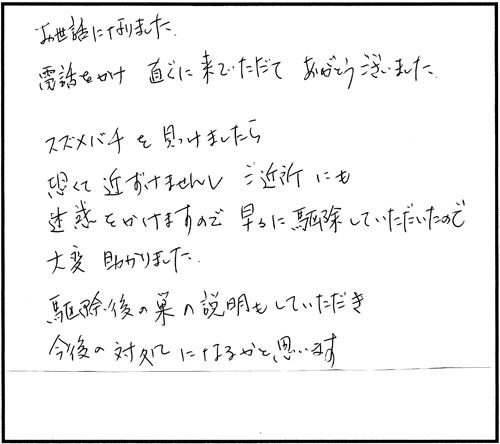 お世話になりました。
電話をかけ 直ぐに来ていただて ありがとうございました。
スズメバチを見つけましたら
恐くて 近ずけませんし ご近所にも
迷惑をかけますので 早るに駆除していただいたので
大変 助かりました。
駆除後の巣の説明もしていただき
今後の対処になるかと思います